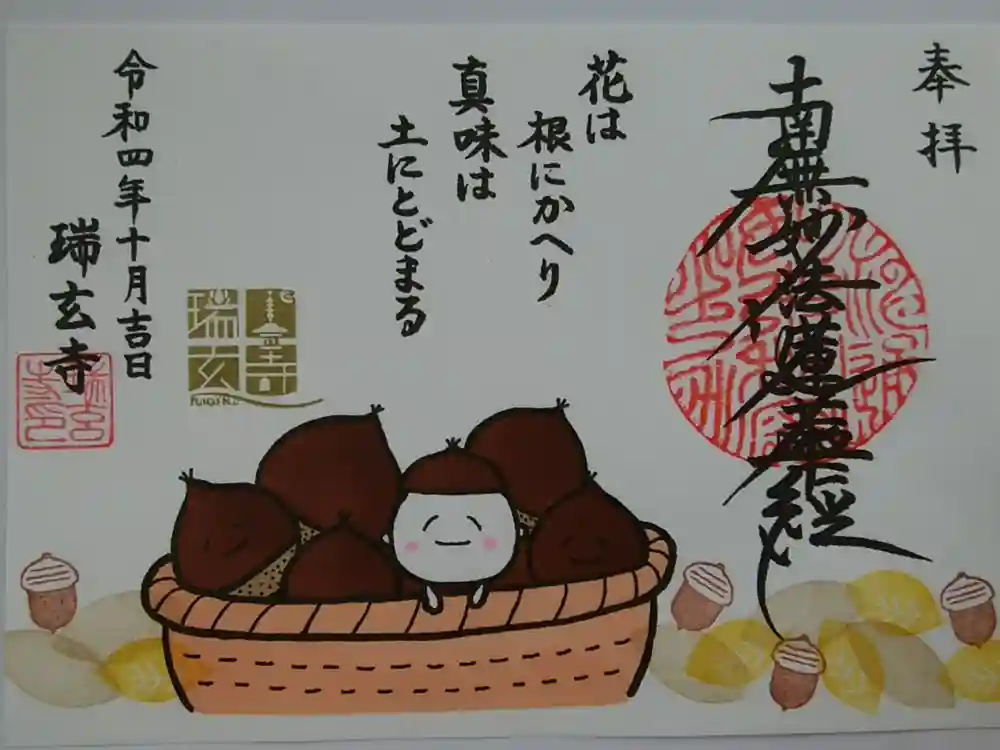 奉拝
南無妙法蓮華経
花は
根にかへり
真味は
土にとどまる
瑞玄寺
令和四年十月吉日
瑞玄寺